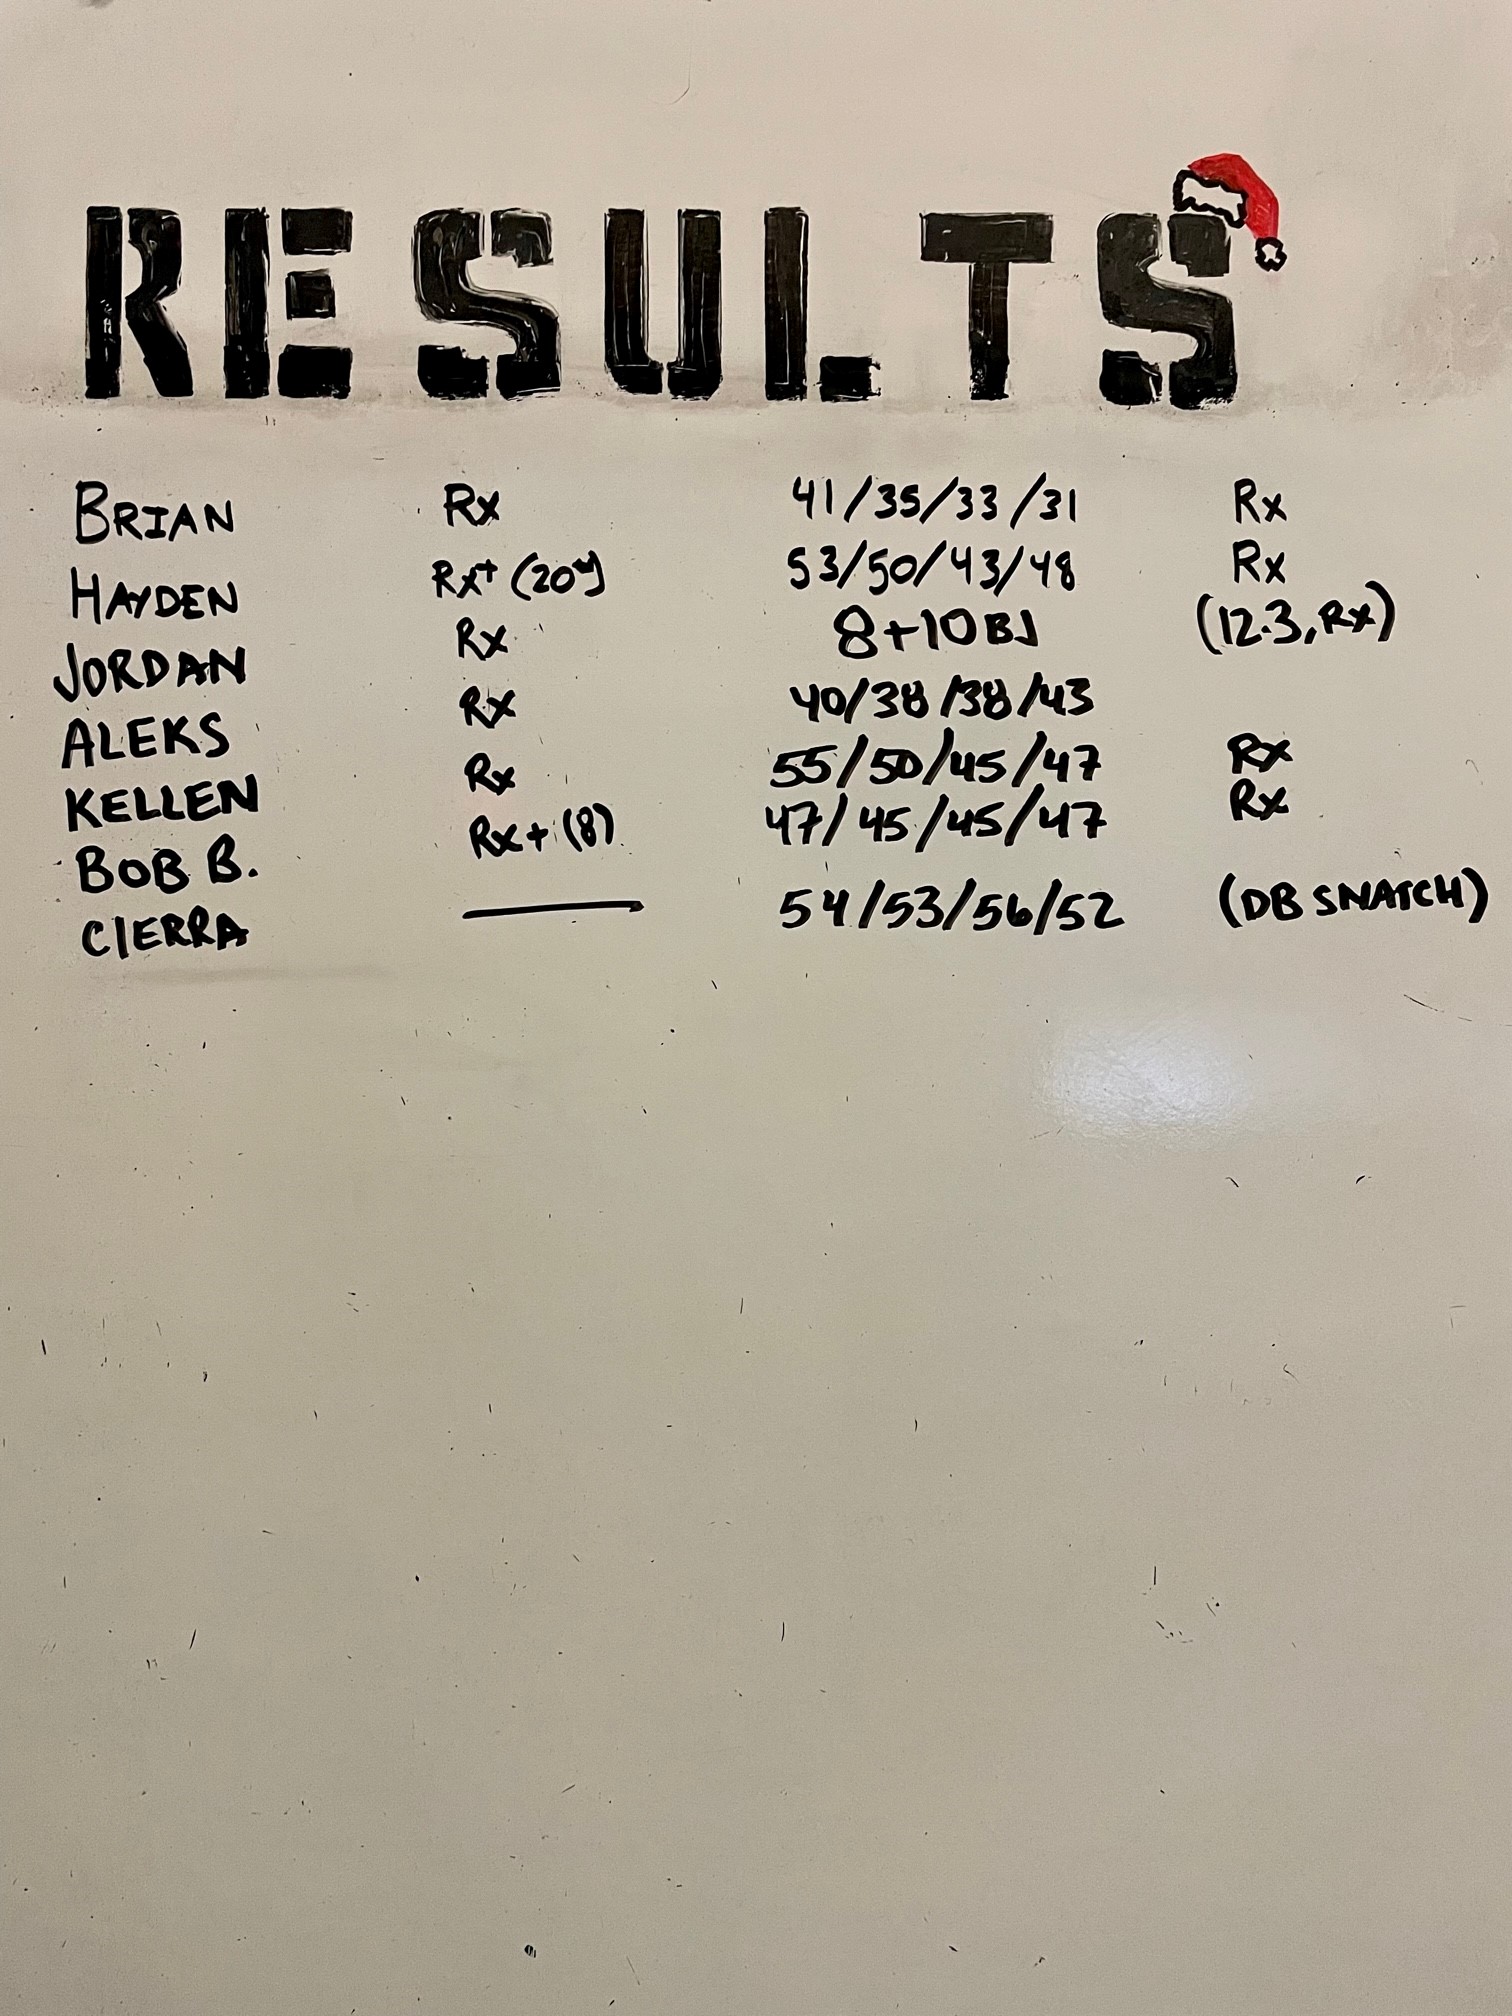 RESULTS
BRIAN Rx 41/35/33/31 Rx
HAYDEN Rx+ 53/50/43/48 Rx
JORDAN Rx 8+10 BJ (12.3, Rx)
ALEKS Rx 40/38/38/43
KELLEN Rx 55/50/45/47 Rx
BOB B. Rx+ (8) 47/45/45/47 Rx
CIERRA 54/53/56/52 (DB SNATCH)